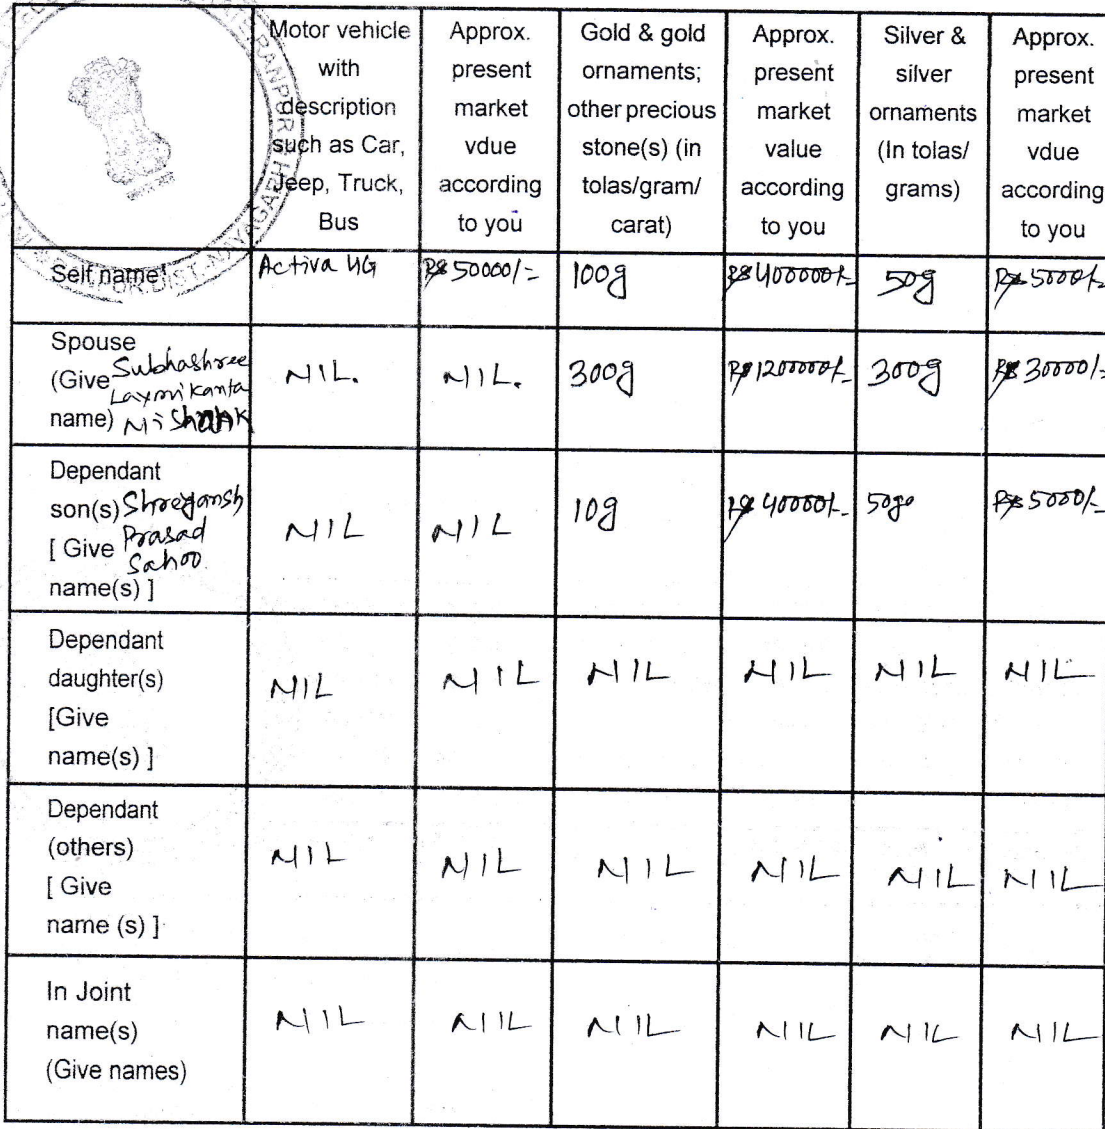 Motor vehicle with description such as Car, Jeep, Truck, Bus
Approx. present market vdue according to you
Gold & gold ornaments; other precious stone(s) (in tolas/gram/ carat)
Approx. present market value according to you
Silver & silver ornaments (In tolas/ grams)
Approx. present market vdue according to you
Self name
Activa 4G
Rs 50000/-
100g
Rs 400000/-
50g
Rs 5000/-
Spouse (Give name)
Subhashree Laxmikanta
NIL.
NIL.
300g
Rs 1200000/-
300g
Rs 30000/-
Dependant son(s) [ Give name(s) ]
Shreyansh Prasad Sahoo
NIL
NIL
10g
Rs 40000/-
50g
Rs 5000/-
Dependant daughter(s) [Give name(s) ]
NIL
NIL
NIL
NIL
NIL
NIL
Dependant (others) [ Give name (s) ]
NIL
NIL
NIL
NIL
NIL
NIL
In Joint name(s) (Give names)
NIL
NIL
NIL
NIL
NIL
NIL